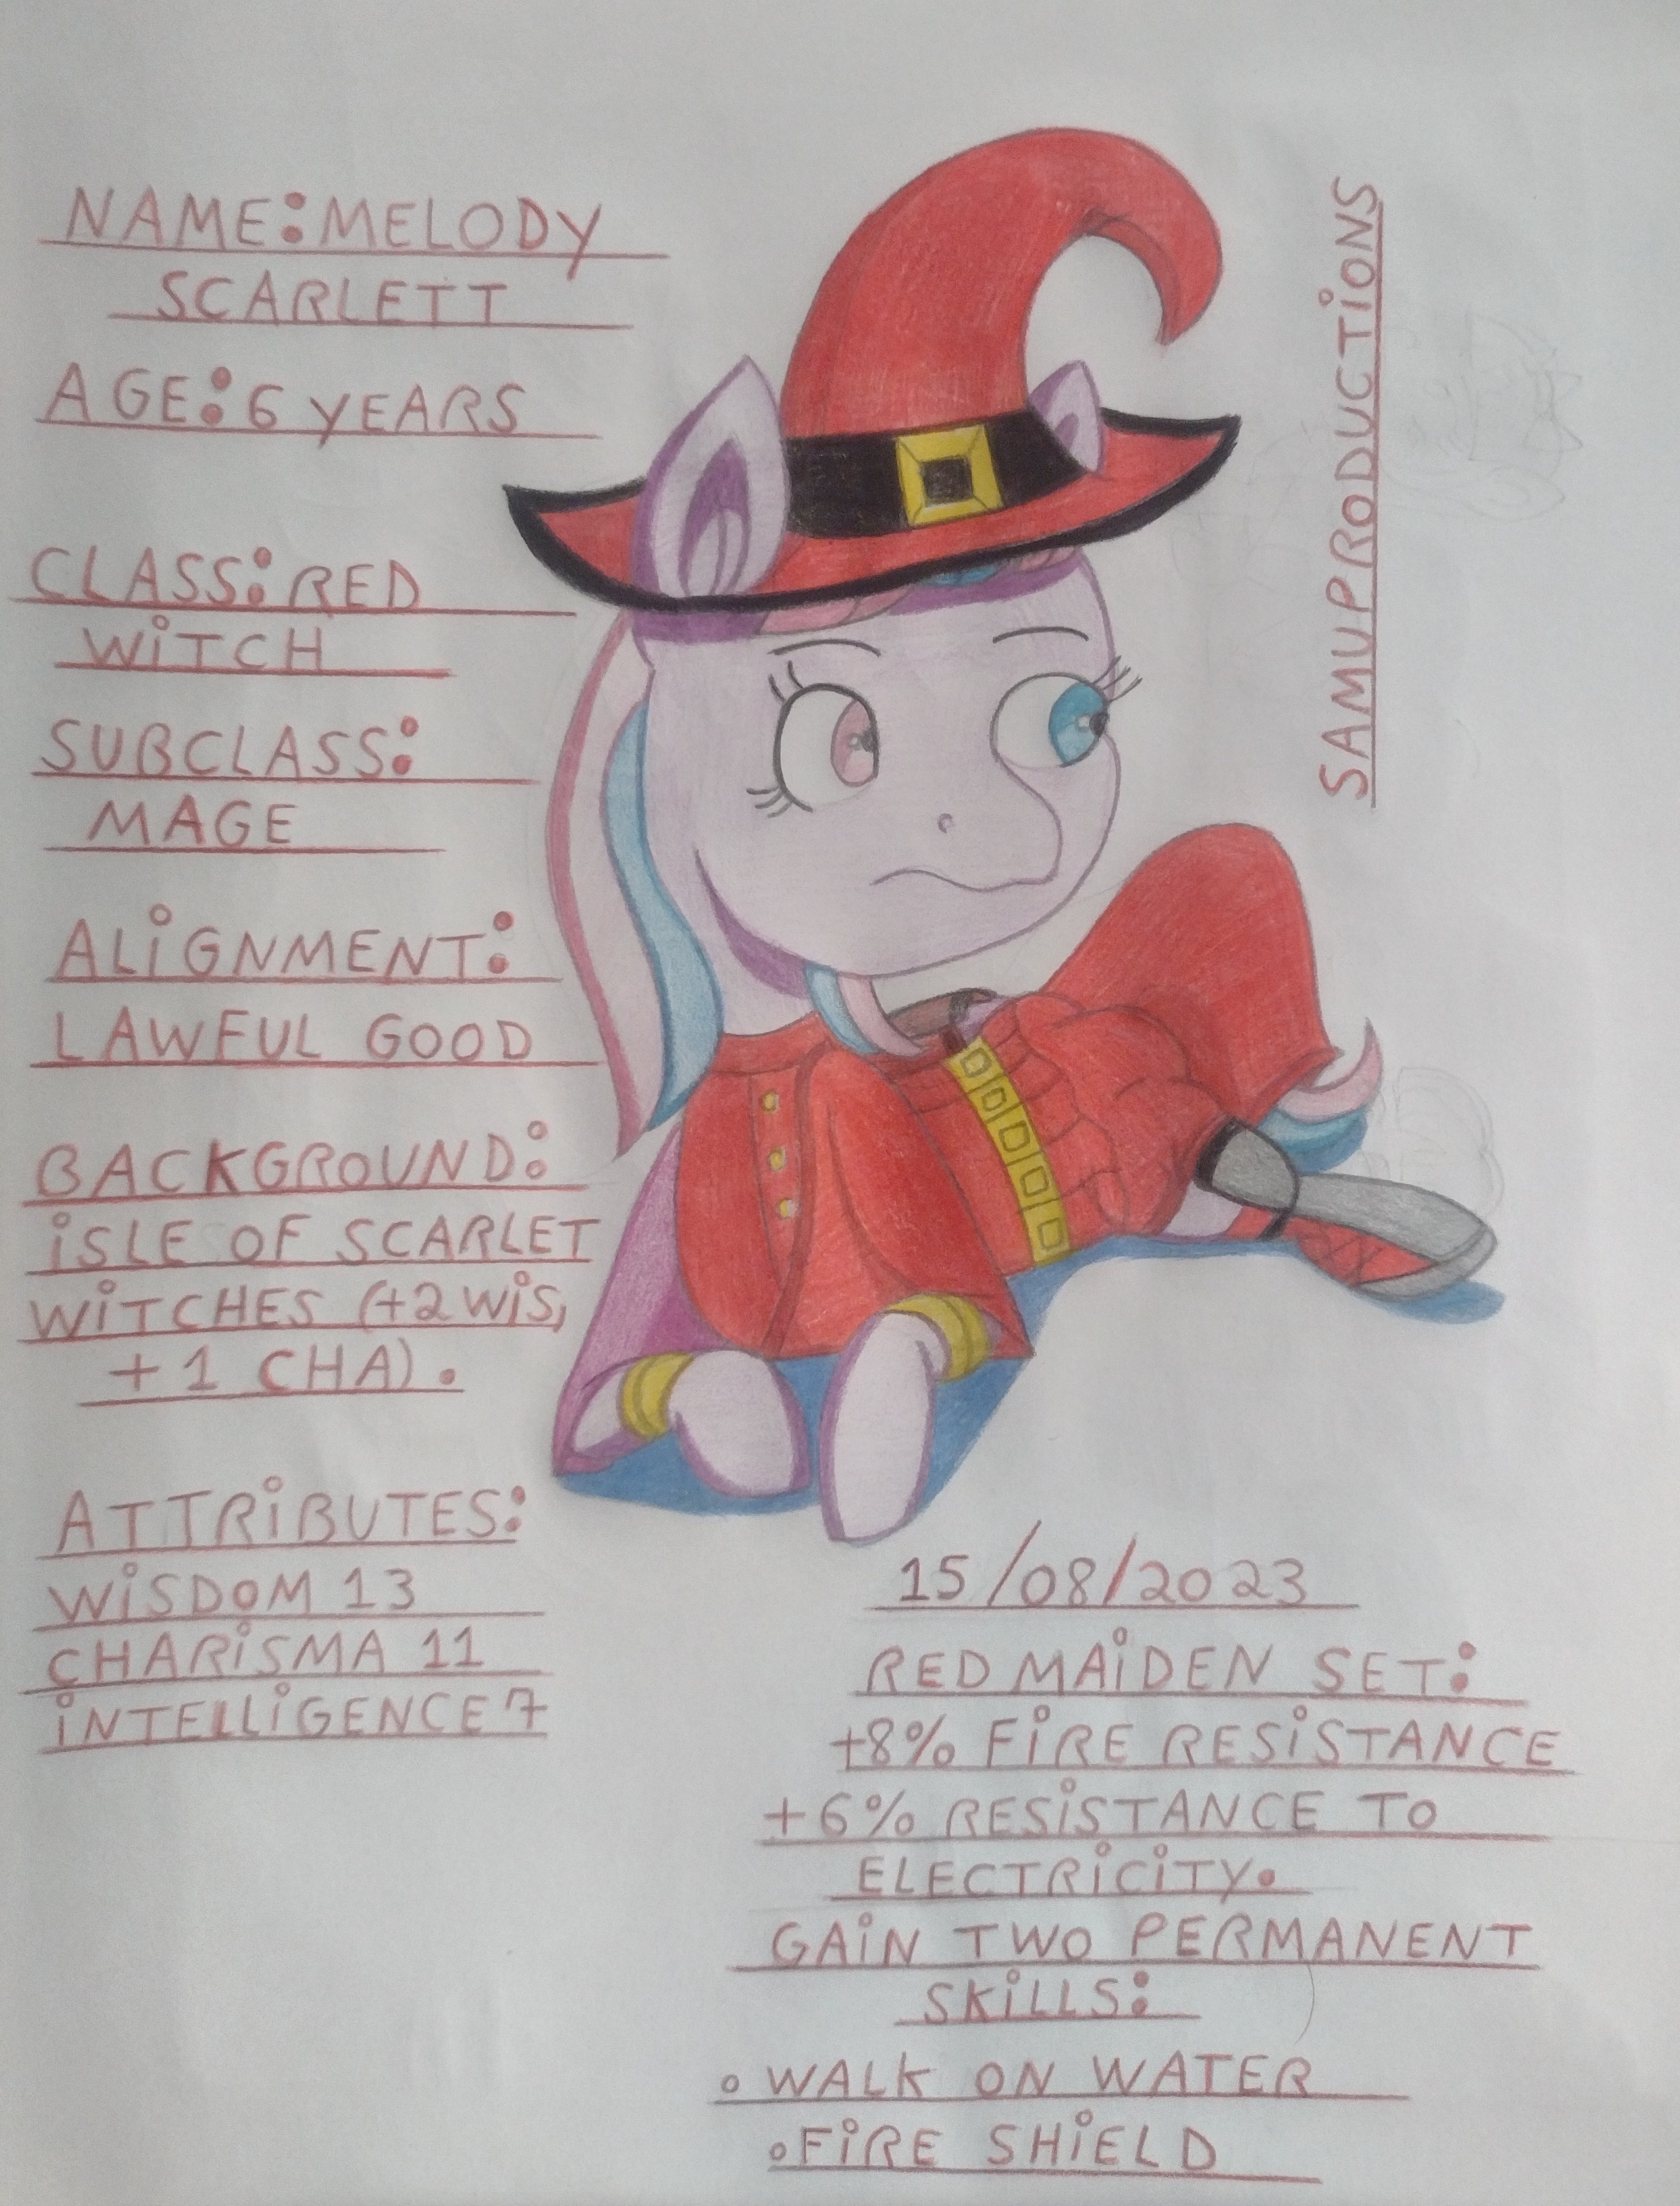 NAME:MELODY
SCARLETT
AGE:6 YEARS
CLASS:RED
WITCH
SUBCLASS:
MAGE
ALIGNMENT:
LAWFUL GOOD
BACKGROUND:
ISLE OF SCARLET
WITCHES (+2 WIS,
+1 CHA).
ATTRIBUTES:
WISDOM 13
CHARISMA 11
INTELLIGENCE 7
SAMUPRODUCTIONS
15/08/2023
RED MAIDEN SET:
+8% FIRE RESISTANCE
+6% RESISTANCE TO
ELECTRICITY.
GAIN TWO PERMANENT
SKILLS:
• WALK ON WATER
• FIRE SHIELD